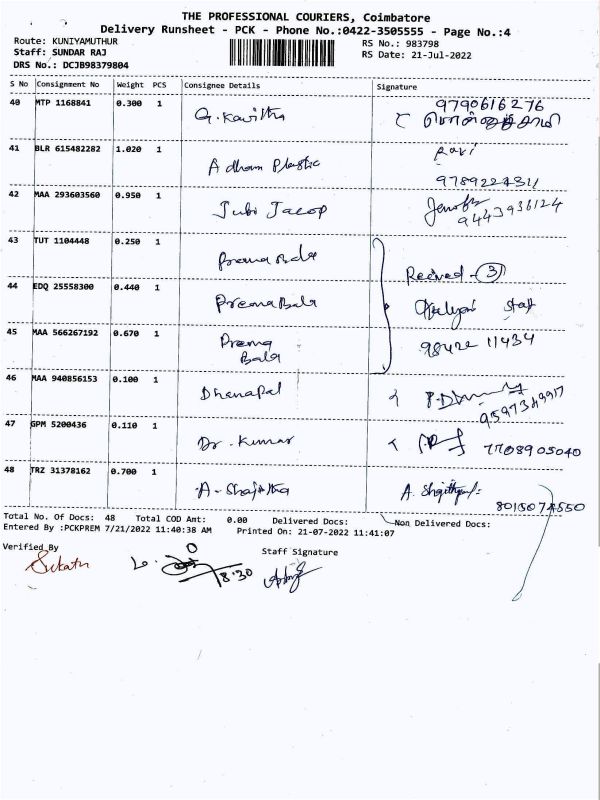 THE PROFESSIONAL COURIERS, Coimbatore
Delivery Runsheet - PCK - Phone No.:0422-3505555 - Page No.:4
Route: KUNIYAMUTHUR RS No.: 983798
Staff: SUNDAR RAJ RS Date: 21-Jul-2022
DRS No.: DCJB98379804
S No Consignment No Weight PCS Consignee Details Signature
40 MTP 1168841 0.300 1 G. Kavitha 9790616276
41 BLR 615482282 1.020 1 Adham Plastic Ravi
42 MAA 293603560 0.950 1 Jubi Jacop 9443936124
43 TUT 1104448 0.250 1 Prema Bala
Received - 3
44 EDQ 25558300 0.440 1 Prema Bala Kalyani staff
45 MAA 566267192 0.670 1 Prema Bala 98422 11434
46 MAA 940856153 0.100 1 Dhanapal
47 GPM 5200436 0.110 1 Dr. Kumar 7708905040
48 TRZ 31378162 0.700 1 A. Shajitha
Total No. Of Docs: 48 Total COD Amt: 0.00 Delivered Docs: Non Delivered Docs:
Entered By :PCKPREM 7/21/2022 11:40:38 AM Printed On: 21-07-2022 11:41:07
Verified By Staff Signature
18.30